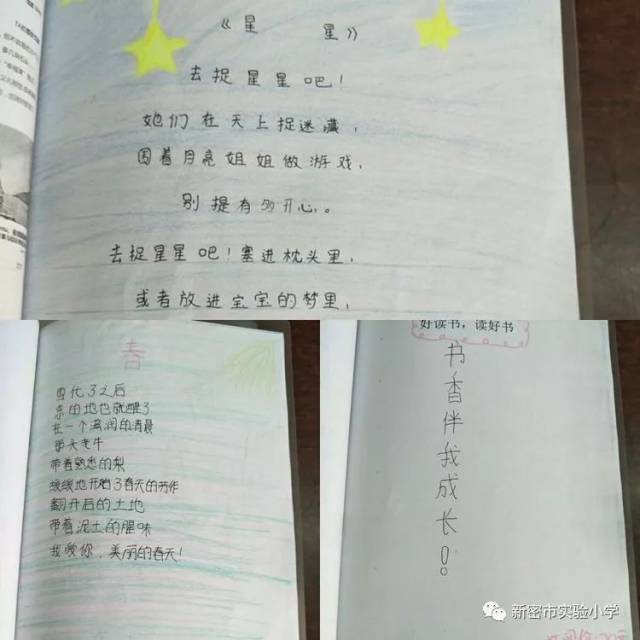 《星 星》
去捉星星吧！
她们在天上捉迷藏，
围着月亮姐姐做游戏，
别提有多开心。
去捉星星吧！塞进枕头里，
或者放进宝宝的梦里，
春
雪化了之后
田地也就醒了
在一个湿润的清晨
老牛
带着熟悉的犁
缓缓地开始了春天的劳作
翻开后的土地
带着泥土的腥味
我爱你，美丽的春天！
好读书，读好书
书香伴我成长！
新密市实验小学